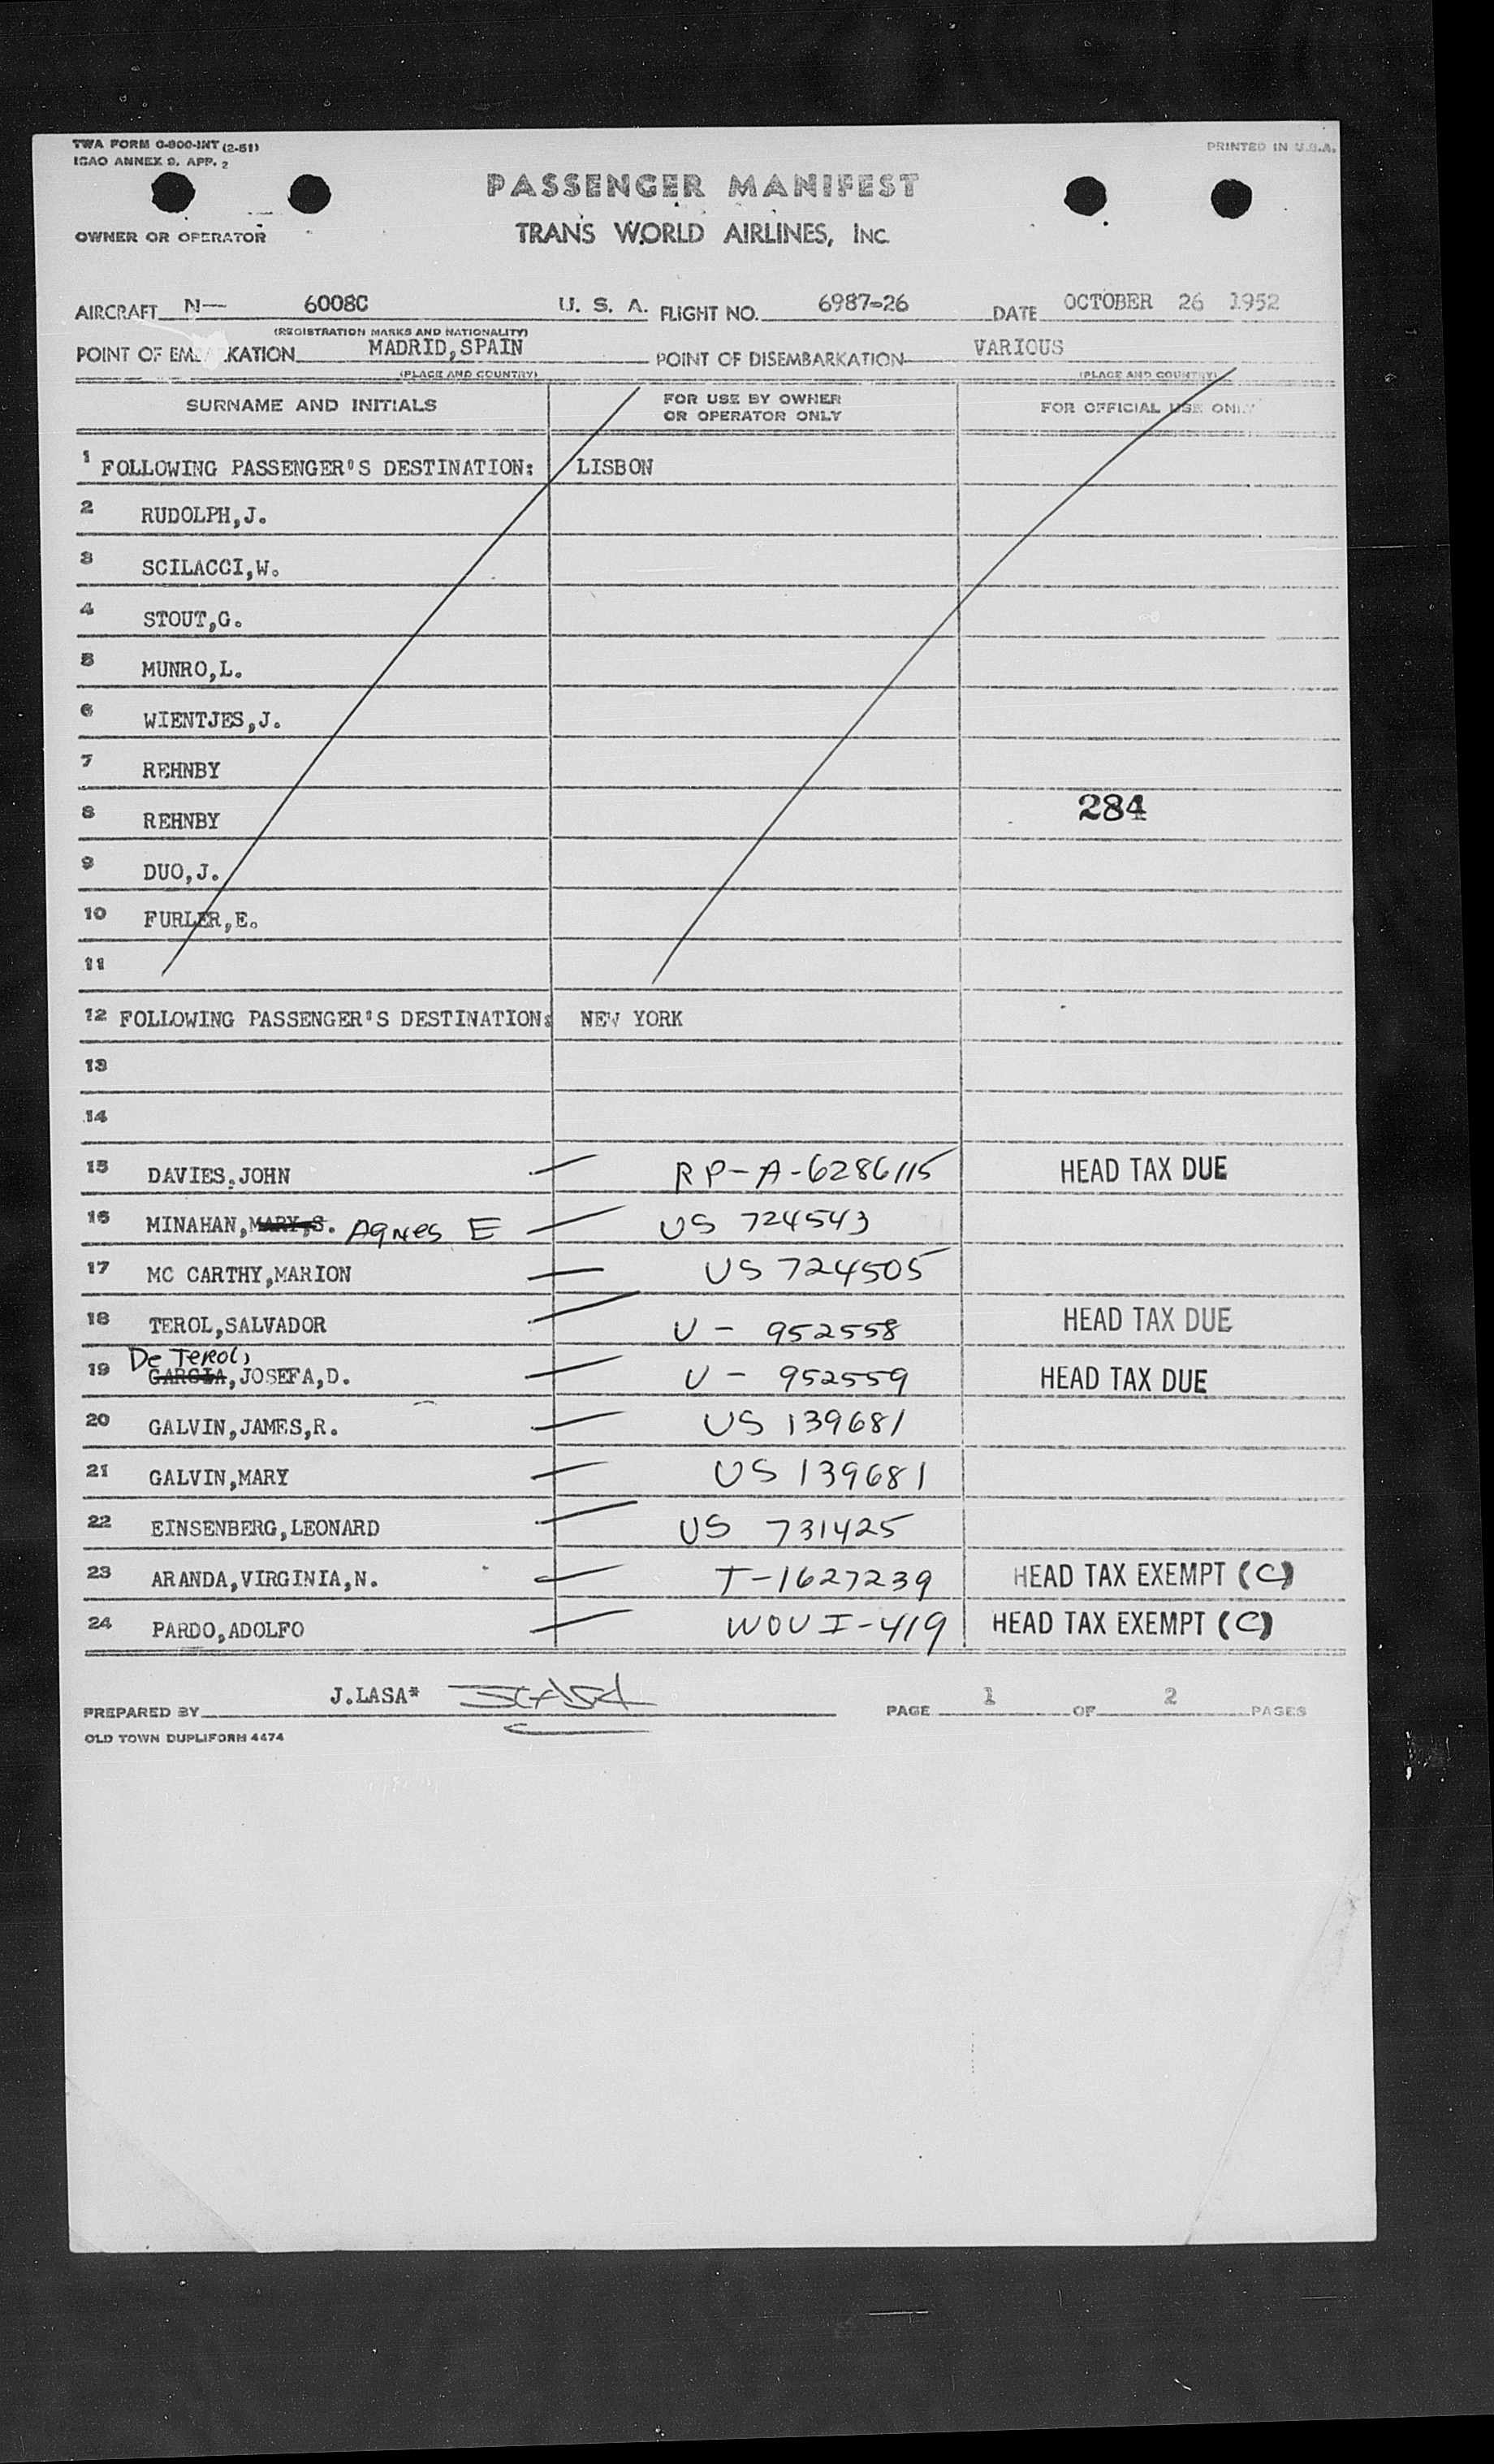 TWA FORM O-800-INT (2-51)
ICAO ANNEX 9. APP. 2
PRINTED IN U.S.A.
PASSENGER MANIFEST
OWNER OR OPERATOR
TRANS WORLD AIRLINES, INC
AIRCRAFT N— 6008C U. S. A. FLIGHT NO. 6987-26 DATE OCTOBER 26 1952
(REGISTRATION MARKS AND NATIONALITY)
POINT OF EMBARKATION MADRID,SPAIN POINT OF DISEMBARKATION VARIOUS
(PLACE AND COUNTRY) (PLACE AND COUNTRY)
SURNAME AND INITIALS FOR USE BY OWNER OR OPERATOR ONLY FOR OFFICIAL USE ONLY
1 FOLLOWING PASSENGER'S DESTINATION: LISBON
2 RUDOLPH,J.
3 SCILACCI,W.
4 STOUT,G.
5 MUNRO,L.
6 WIENTJES,J.
7 REHNBY
8 REHNBY 284
9 DUO,J.
10 FURLER,E.
11
12 FOLLOWING PASSENGER'S DESTINATION: NEW YORK
13
14
15 DAVIES,JOHN RP-A-6286115 HEAD TAX DUE
16 MINAHAN,MARY,S. Agnes E US 724543
17 MC CARTHY,MARION US 724505
18 TEROL,SALVADOR U - 952558 HEAD TAX DUE
De Terol,
19 GARCIA,JOSEFA,D. U - 952559 HEAD TAX DUE
20 GALVIN,JAMES,R. US 139681
21 GALVIN,MARY US 139681
22 EINSENBERG,LEONARD US 731425
23 ARANDA,VIRGINIA,N. T-1627239 HEAD TAX EXEMPT (C)
24 PARDO,ADOLFO WOU I-419 HEAD TAX EXEMPT (C)
PREPARED BY J.LASA* PAGE 1 OF 2 PAGES
OLD TOWN DUPLIFORM 4474